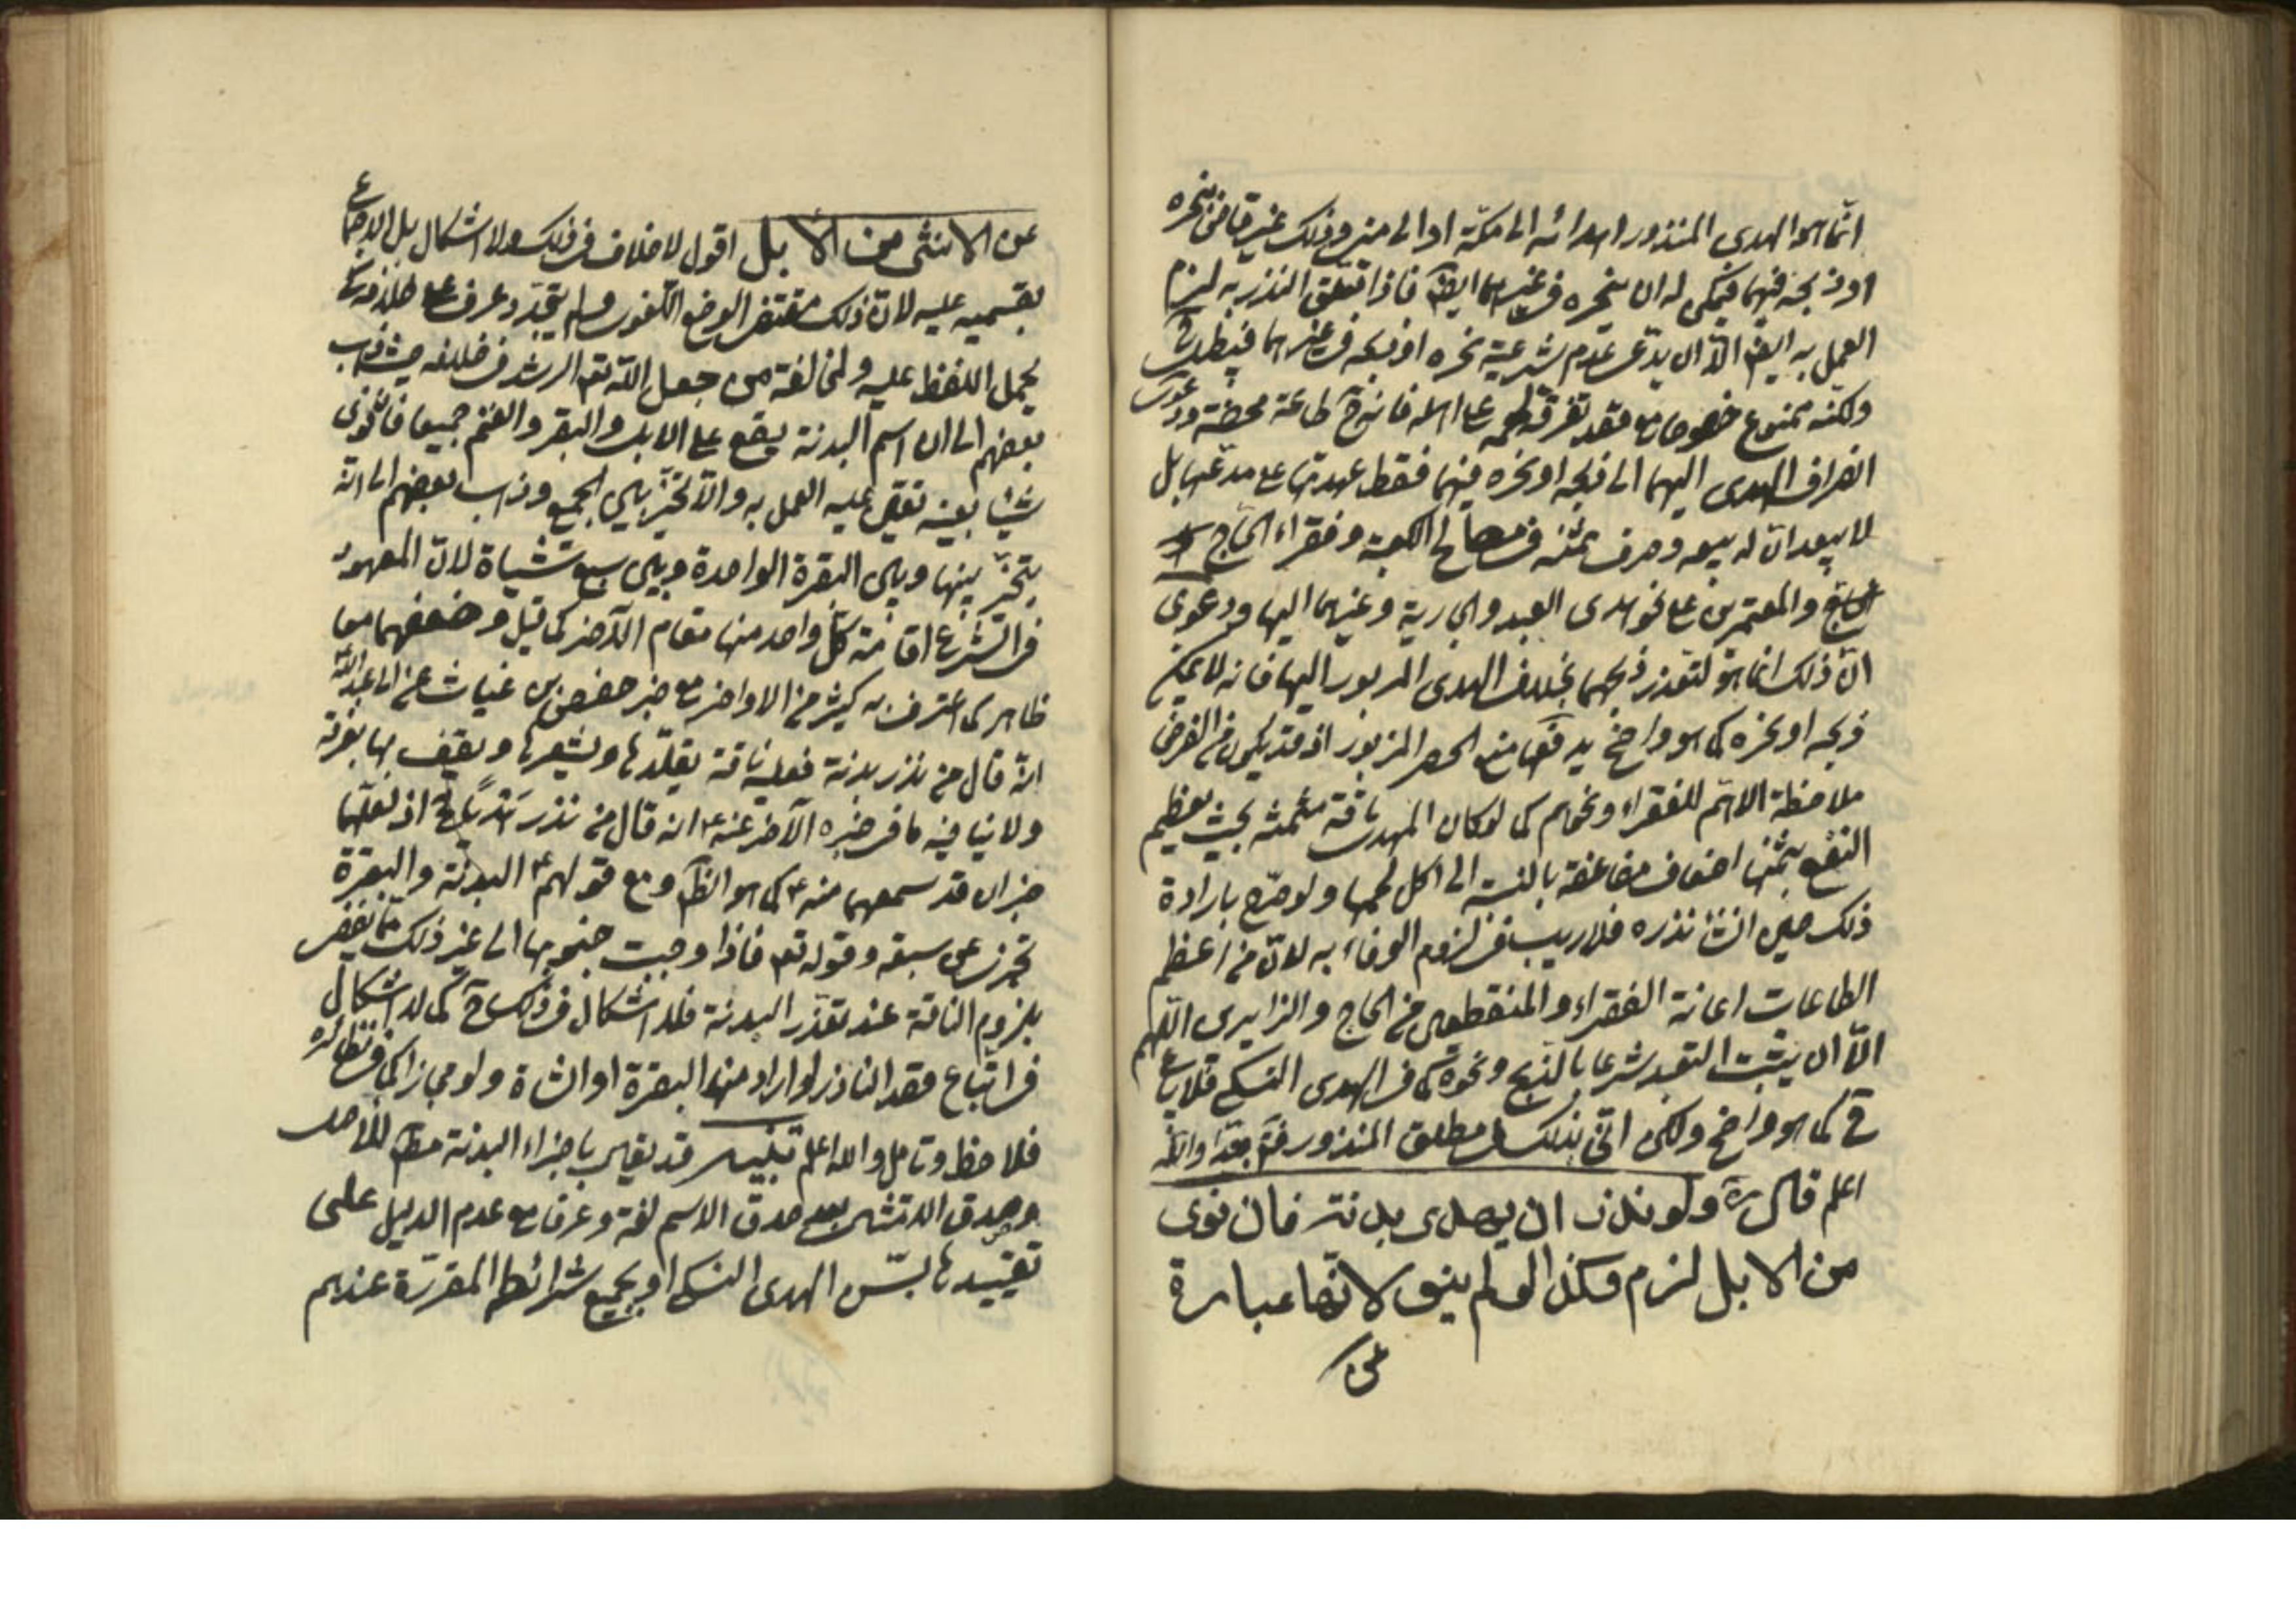 انّما هو الهدى المنذور اهدائه الى مكّة او الى منى وذلك غير قاض بنحره
او ذبحه فيهما فيمكن له ان ينحره فى غيرهما ايضا فاذا تعلق النذر به لزم
العمل به ايضا الّا ان يدّعى عدم شرعية نحره او ذبحه فى غيرهما فيبطل
ولكنه ممنوع خصوصا مع قصد تفرقة لحمه على اهله فانه ح طاعة محضة ودعوى
انصراف الهدى اليهما الى ذبحه او نحره فيهما فقط عهدتها على مدعيها بل
لا يبعد ان له بيعه وصرف ثمنه فى مصالح الكعبة وفقراء الحاج
والمعتمرين على نحو هدى العبد والجارية وغيرهما اليها ودعوى
انّ ذلك انما هو لتعذر ذبحهما بخلاف الهدى المزبور اليها فانه لا يمكن
ذبحه او نحره كما هو واضح يدفعها منع الحصر المزبور اذ قد يكون من الغرض
ملاحظة الاهم للفقراء ونحوهم كما لو كان المهدى ناقة مثمنة بحيث يعظم
النفع بثمنها اضعاف مضاعفة بالنسبة الى اكل لحمها ولو صرّح بارادة
ذلك حين انشا نذره فلا ريب فى لزوم الوفاء به لانّ من اعظم
الطاعات اعانة الفقراء والمنقطعين من الحاج والزايرين اللّهم
الّا ان يثبت التعبد شرعا بالذبح ونحوه كما فى الهدى النسكى فلا بيع
ح كما هو واضح ولكن انّى بذلك فى مطلق المنذور فت جدّا واللّه
اعلم قال ره ولو نذر ان يهدى بدنة فان نوى
من الابل لزم وكذا لو لم ينو لانّها عبارة
عن
عن الانثى من الابل اقول لا خلاف فى ذلك ولا اشكال بل الاجماع
بقسميه عليه لانّ ذلك مقتضى الوضع اللّغوى ولم يتجدّد عرف على خلافه
يحمل اللفظ عليه ولمخالفة من جعل اللّه تعم الرشد فى خلافه حيث ذهب
بعضهم الى ان اسم البدنة يقع على الابل والبقر والغنم جميعا فان نوى
شيئا بعينه تعين عليه العمل به والّا تخيّر بين الجميع وذهب بعضهم الى انّه
يتخيّر بينها وبين البقرة الواحدة وبين سبع شياة لانّ المعهود
فى الشرع اقامة كلّ واحد منها مقام الآخر كما قيل وضعفهما معا
ظاهر كما اعترف به كثير من الاواخر مع خبر حفص بن غياث عن ابى عبد اللّه
انّه قال من نذر بدنة فعليه ناقة يقلّدها ويشعرها ويقف بها بعرفة
ولا ينافيه ما فى خبره الآخر عنه ع انه قال من نذر اذ لعلّهما
خبران قد سمعهما منه ع كما هو الظ ومع قولهم ع البدنة والبقرة
تجزى عن سبعة وقوله تعم فاذا وجبت جنوبها الى غير ذلك
بلزوم الناقة عند تعذّر البدنة فلا اشكال فى ذلك ح كما لا اشكال
فى اتباع قصد الناذر لو اراد منها البقرة او الشاة ولو مجازا كما فى نظائره
فلاحظ وتامل واللّه اعلم تنبيه قد يقال باجزاء البدنة مط للاصل
وصدق الامتثال بعد صدق الاسم لغة وعرفا مع عدم الدليل على
تقييدها بسنّ الهدى النسكى او بجميع شرائطه المقررة عندهم